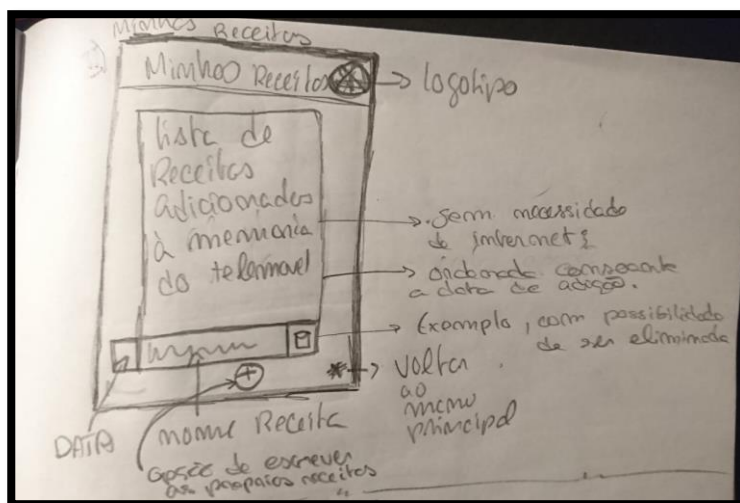 Minhas Receitas
Minhas Receitas
→ logotipo
Lista de
Receitas
adicionadas
à memória
do telemóvel
→ . Sem necessidade
de internet;
→ ordenada consoante
a data de adição.
→ Exemplo, com possibilidade
de ser eliminada
* → Volta
ao
menu
principal
DATA
nome Receita
opção de escrever
as próprias receitas